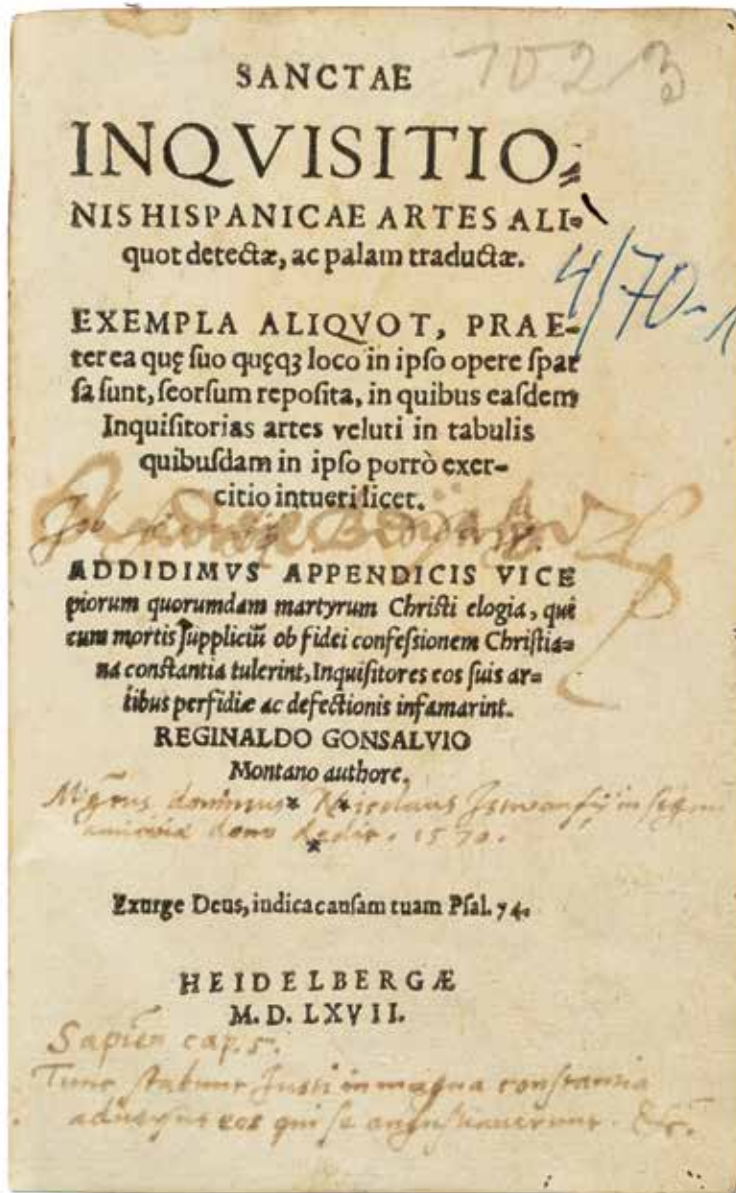 1023
SANCTAE
INQVISITIO-
NIS HISPANICAE ARTES ALI-
quot detectæ, ac palam traductæ.
4/70-1
EXEMPLA ALIQVOT, PRAE-
terea quę suo quęqꝫ loco in ipso opere spar
sa sunt, seorsum reposita, in quibus easdem
Inquisitorias artes veluti in tabulis
quibusdam in ipso porrò exer-
citio intueri licet.
ADDIDIMVS APPENDICIS VICE
piorum quorumdam martyrum Christi elogia, qui
cum mortis suppliciũ ob fidei confessionem Christia=
na constantia tulerint, Inquisitores eos suis ar=
tibus perfidiæ ac defectionis infamarint.
REGINALDO GONSALVIO
Montano authore.
dominus Nicolaus in
dono dedit. 1570.
* *
*
Exurge Deus, iudica causam tuam Psal. 74.
HEIDELBERGÆ
M. D. LXVII.
Sapien cap. 5.
Tunc stabunt Justi in magna constantia
adversus eos qui se angustiaverunt. &c.